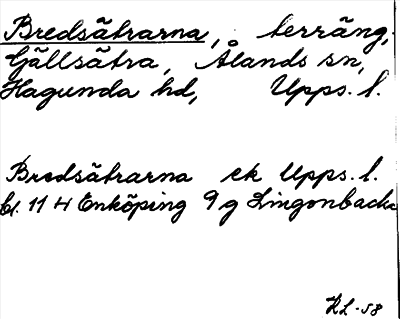 Bredsätrarna, terräng,
Gällsätra, Ålands sn,
Hagunda hd, Upps. l.
Bredsätrarna ek Upps. l.
bl. 11 H Enköping 9 g Lingonbacka
KL -58